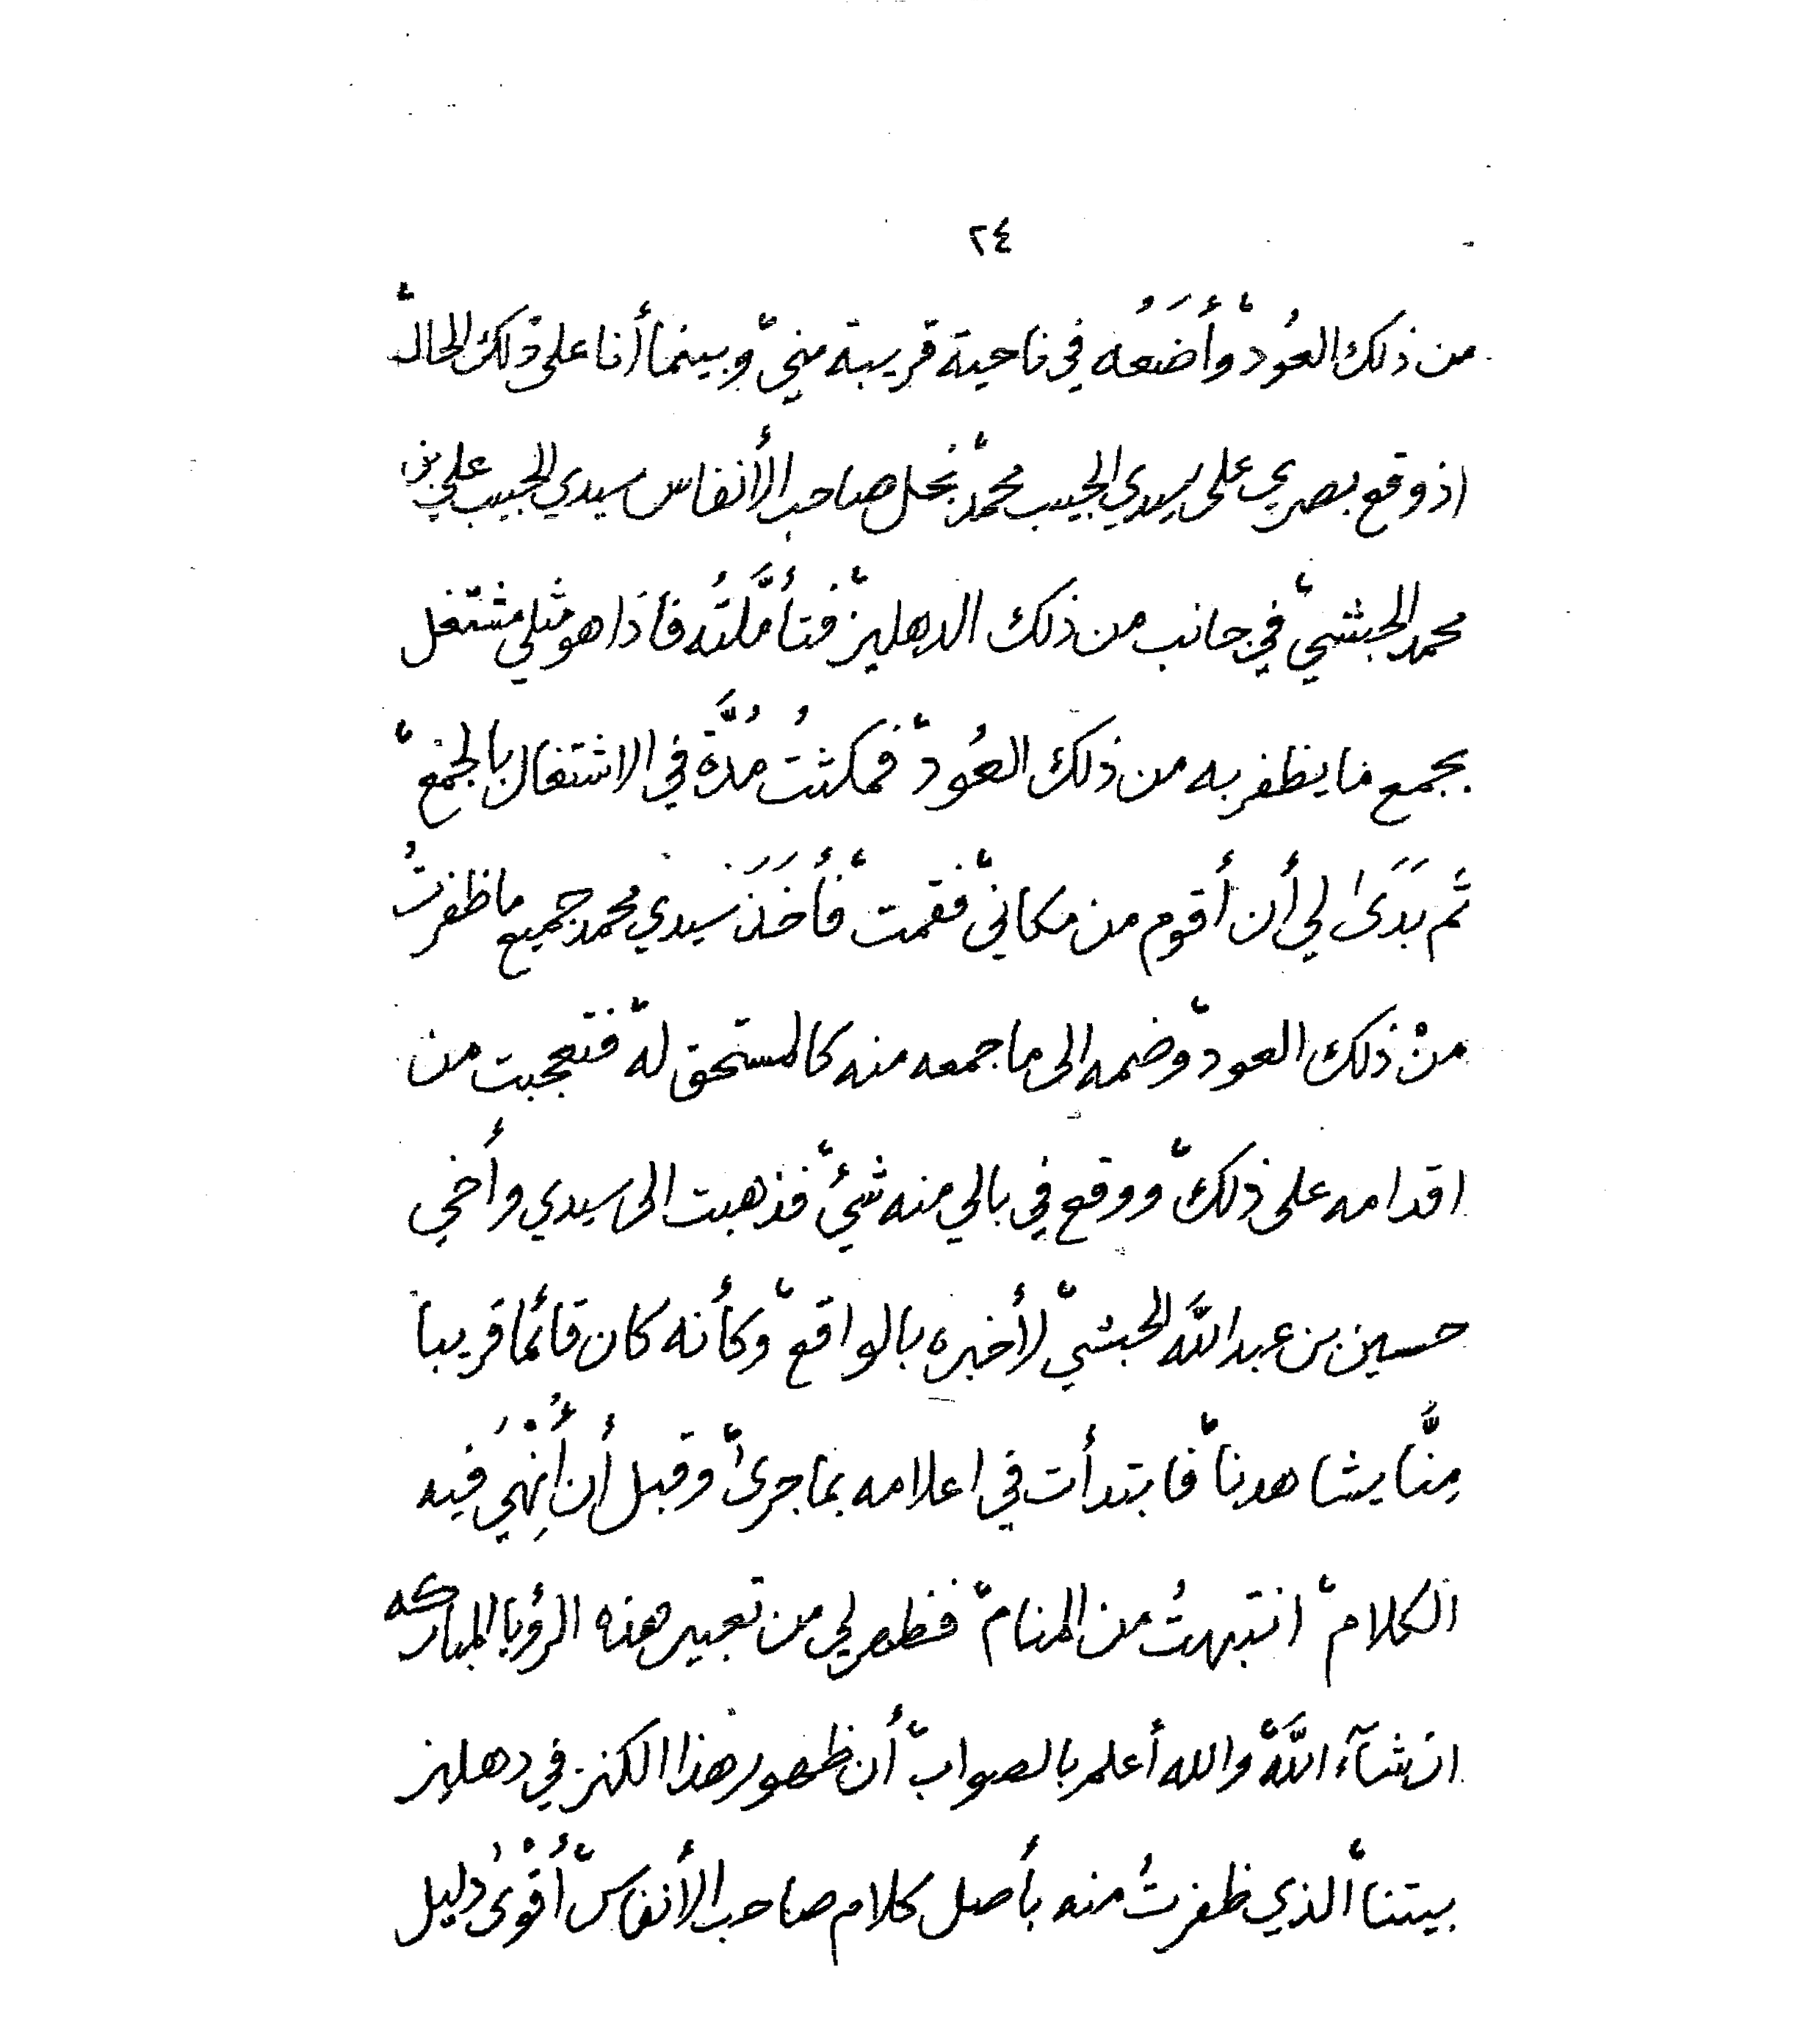 ٢٤
من ذلك العُود، وأَضَعُه في ناحية قريبة مني، وبينما أنا على ذلك الحال،
اذ وقع بصري على سيدي الحبيب محمد، نجل صاحب الأنفاس سيدي الحبيب علي بن
محمد الحبشي، في جانب من ذلك الدهليز، فتأمَّلتُه فاذا هو مثلي مشتغل
بجمع ما يظفر به من ذلك العُود، فمكثتُ مُدَّةً في الاشتغال بالجمع،
ثم بَدَىٰ لي أن أقوم من مكاني، فقمت، فأَخَذَ سيدي محمد جميع ما ظفرتُ
منْ ذلك العود، وضمه الى ما جمعه منه كالمستحق له، فتعجبت من
اقدامه على ذلك، ووقع في بالي منه شئ، فذهبت الى سيدي وأخي
حسين بن عبد اللَّه الحبشي، لأخبره بالواقع، وكأنه كان قائما قريبا
مِنَّا يشاهدنا، فابتدأت في اعلامه بما جرىٰ، وقبل أن أُنْهِيَ فيه
الكلام، انتبهتُ من المنام، فظهر لي من تعبير هذه الرؤيا المباركه
ان شآء اللَّه، والله أعلم بالصواب، أن ظهور هذا الكنز في دهليز
بيتنا، الذي ظفرتُ منه بأصل كلام صاحب الأنفاس، أَقْوىٰ دليل